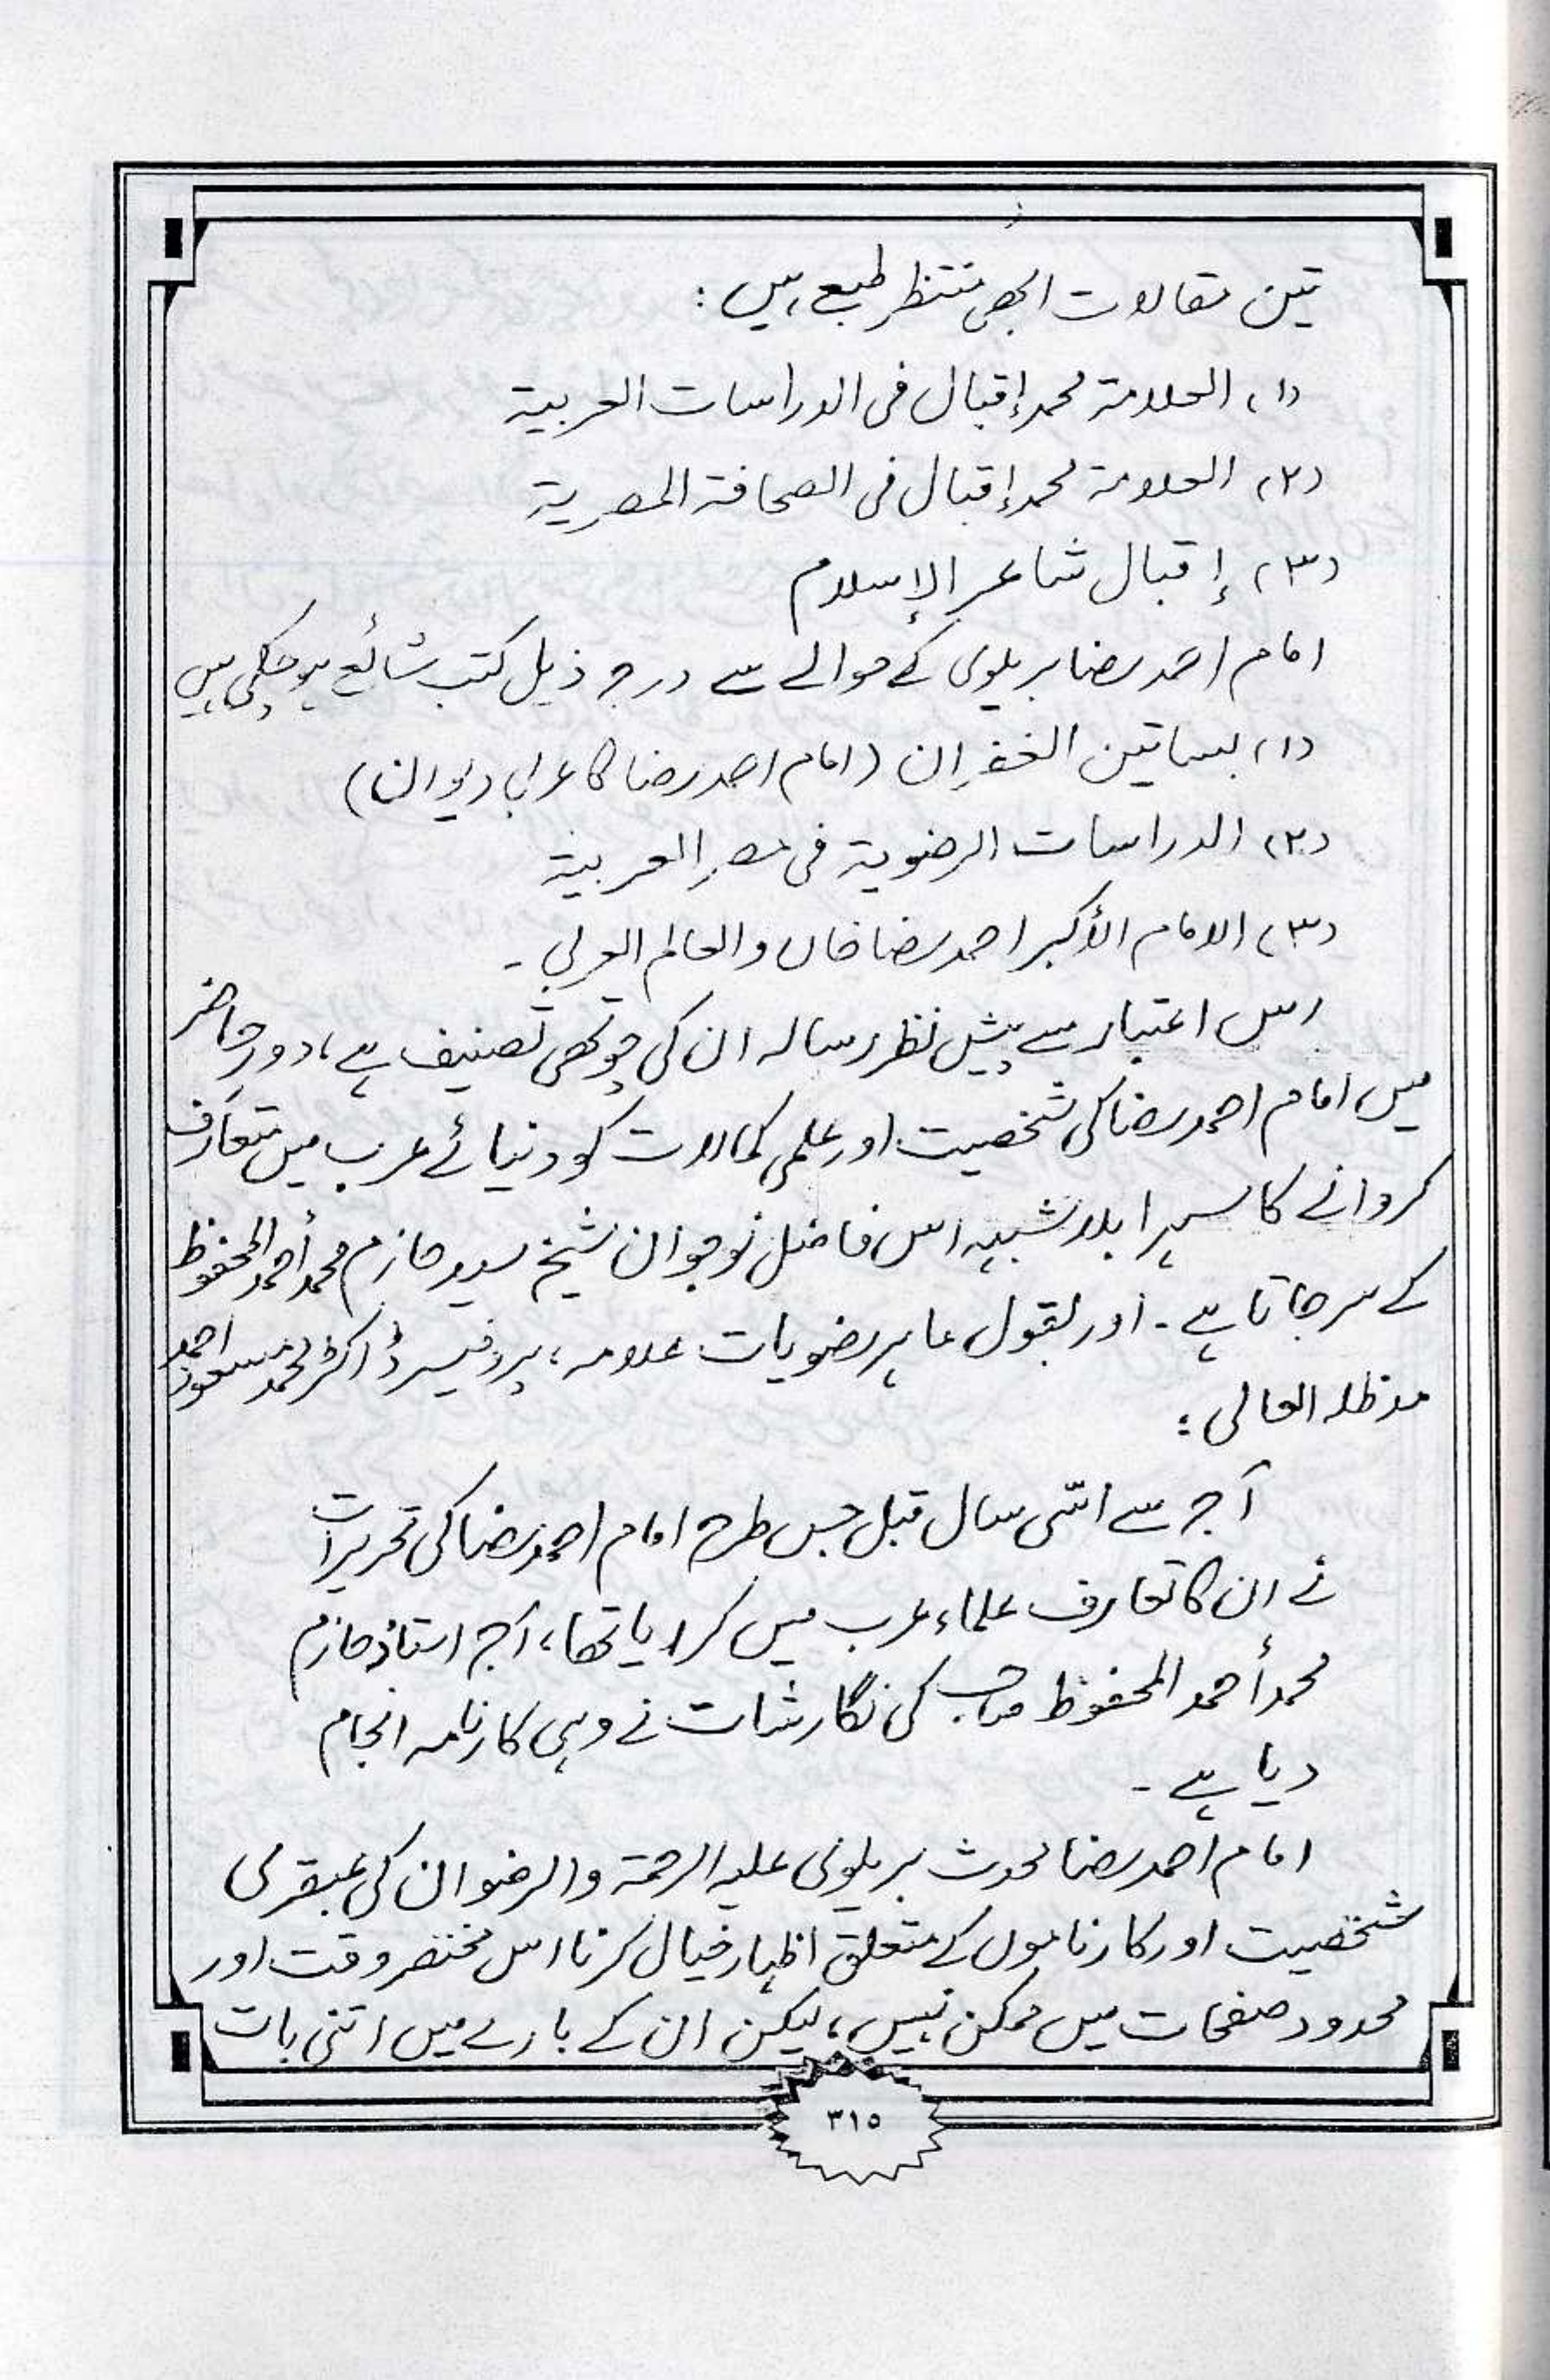 تین مقالات ابھی منتظر طبع ہیں :
(۱) العلامة محمد إقبال فی الدراسات العربیة
(۲) العلامة محمد إقبال فی الصحافة المصریة
(۳) إقبال شاعر الإسلام
امام احمد رضا بریلوی کے حوالے سے درج ذیل کتب شائع ہوچکی ہیں
(۱) بساتین الغفران (امام احمد رضا کا عربی دیوان)
(۲) الدراسات الرضویة فی مصر العربیة
(۳) الامام الأکبر احمد رضا خاں والعالم العربی ۔
اس اعتبار سے پیشِ نظر رسالہ ان کی چوتھی تصنیف ہے، دورِ حاضر
میں امام احمد رضا کی شخصیت اور علمی کمالات کو دنیائے عرب میں متعارف
کروانے کا سہرا بلا شبہہ اس فاضل نوجوان شیخ سید حازم محمد أحمد المحفوظ
کے سر جاتا ہے ۔ اور بقول ماہر رضویات علامہ، پروفیسر ڈاکٹر محمد مسعود احمد
مدظلہ العالی :
آج سے اسّی سال قبل جس طرح امام احمد رضا کی تحریرات
نے ان کا تعارف علماء عرب میں کرایا تھا، آج استاذ حازم
محمد أحمد المحفوظ صاحب کی نگارشات نے وہی کارنامہ انجام
دیا ہے ۔
امام احمد رضا محدث بریلوی علیہ الرحمة والرضوان کی عبقری
شخصیت اور کارناموں کے متعلق اظہارِ خیال کرنا اس مختصر وقت اور
محدود صفحات میں ممکن نہیں، لیکن ان کے بارے میں اتنی بات
۳۱۵